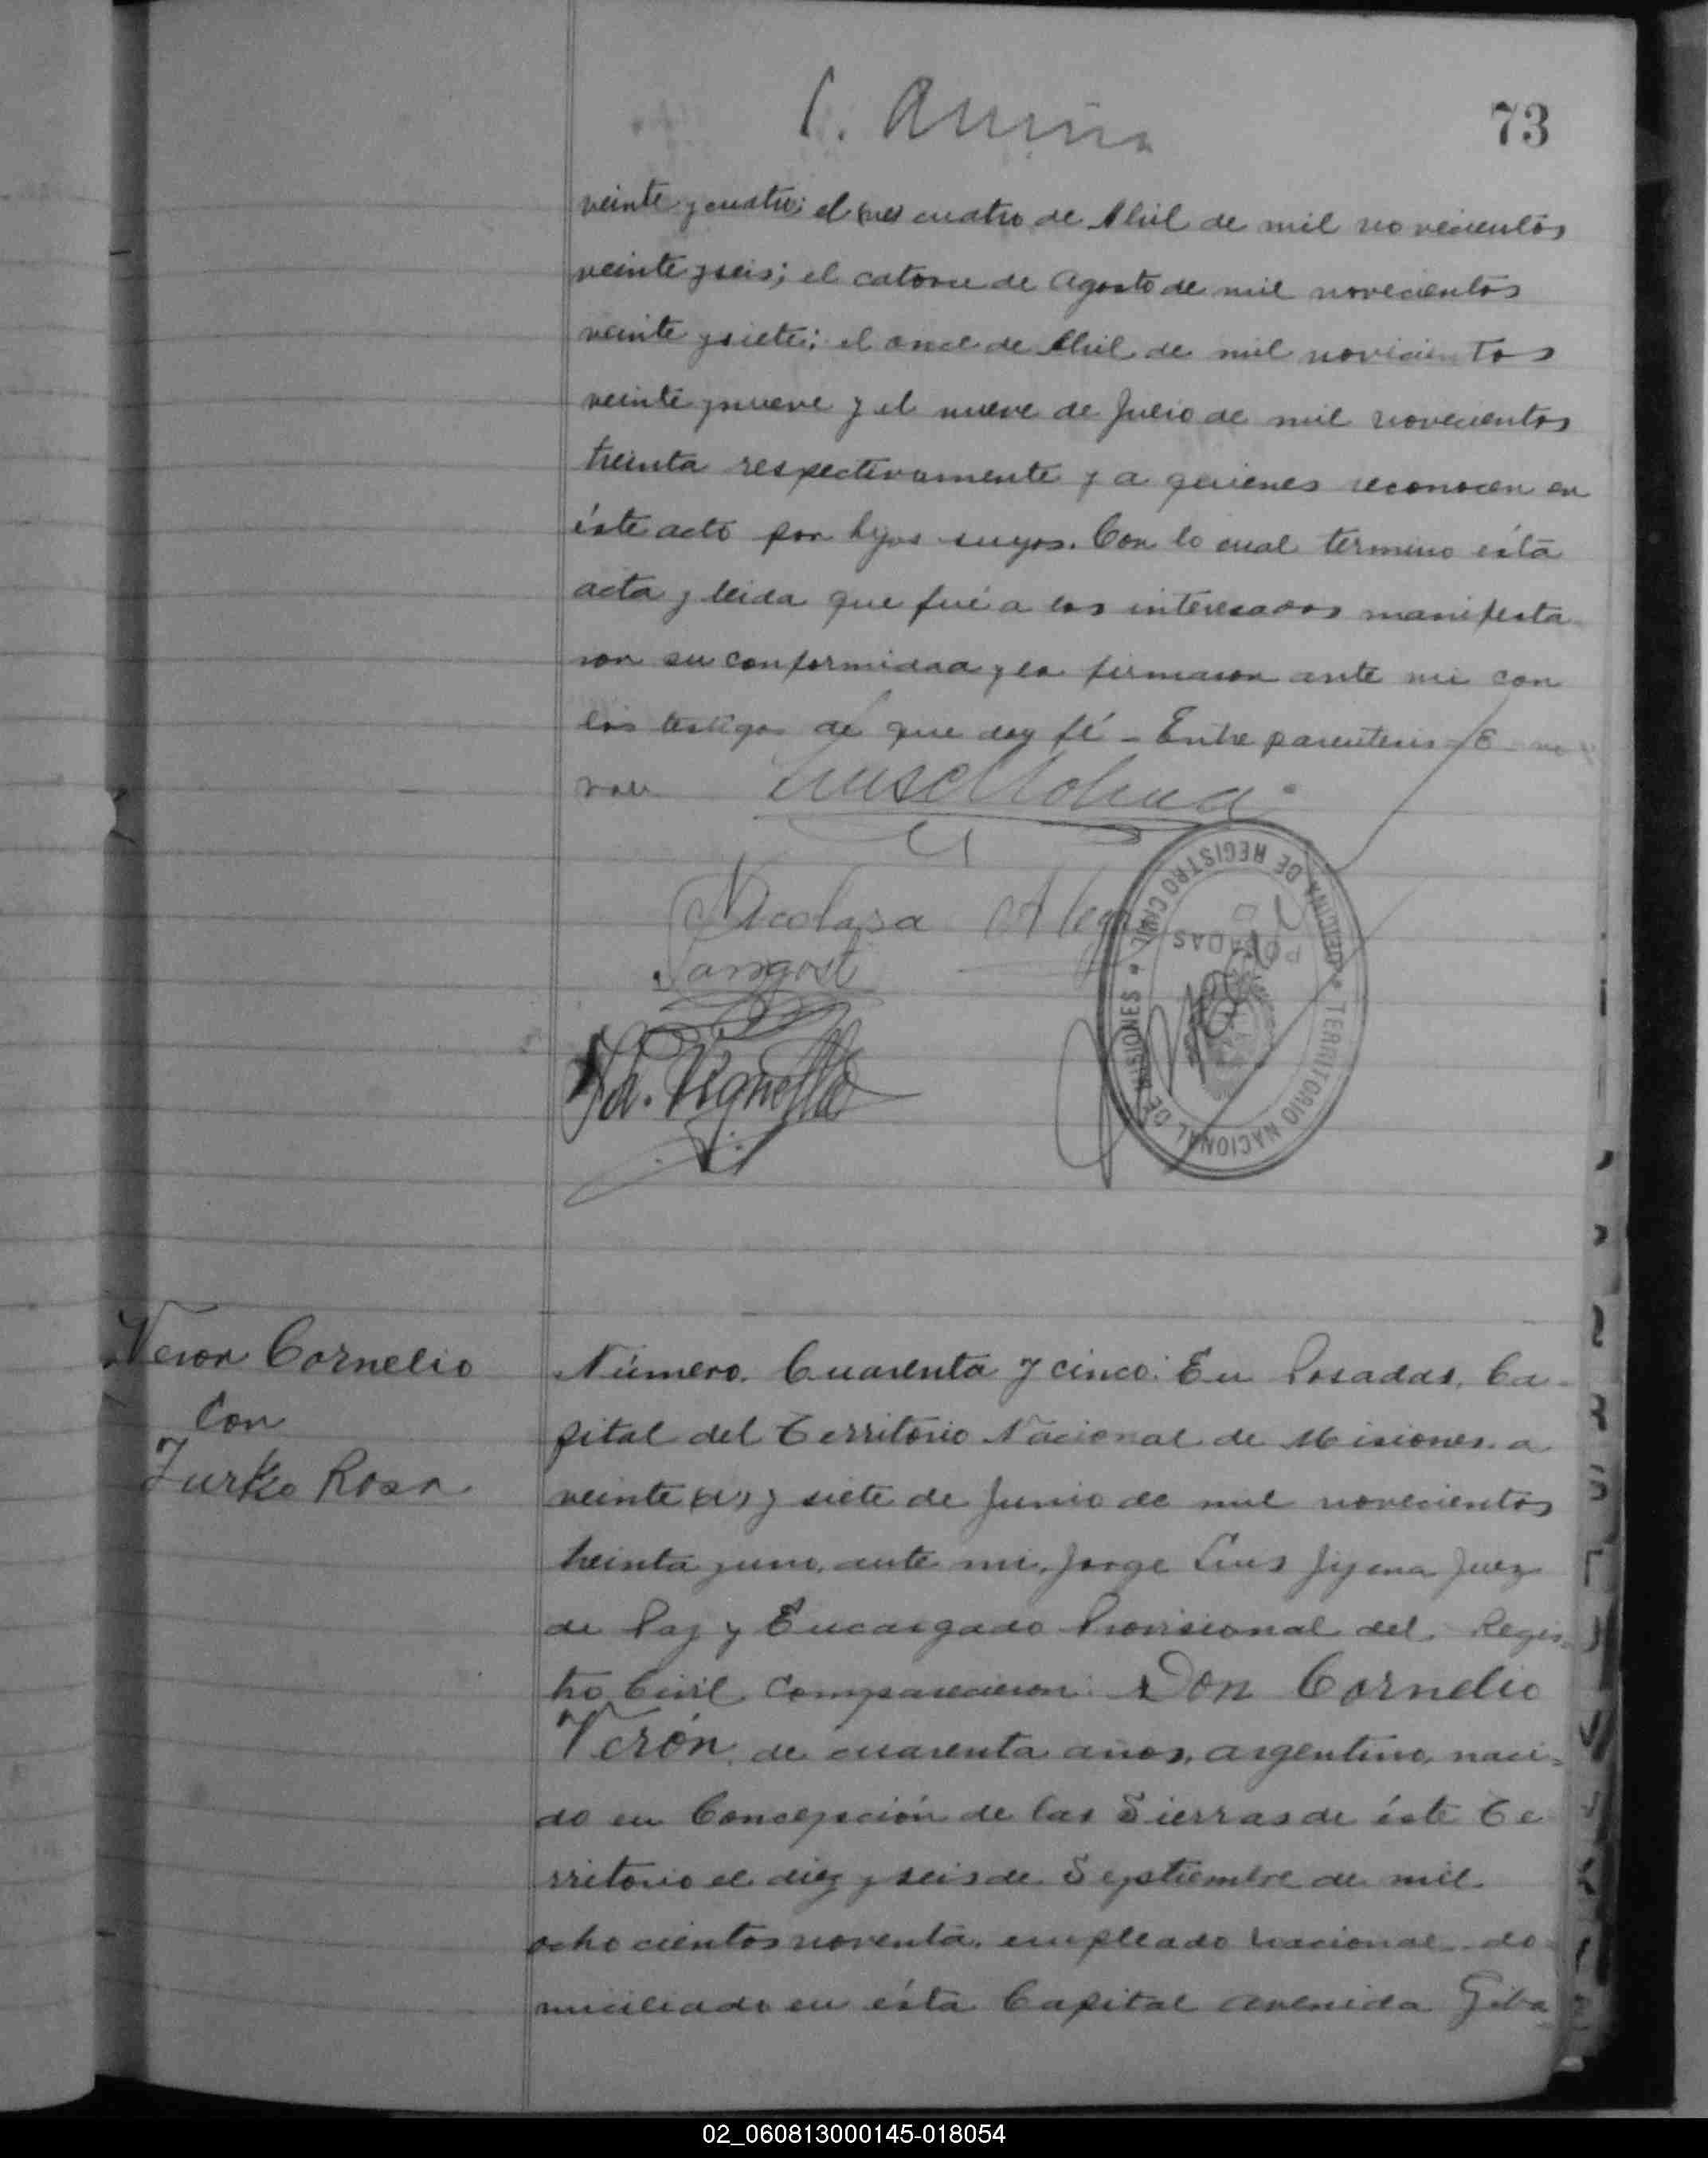 73
veinte y cuatro; el (tres) cuatro de Abril de mil novecientos
veinte y seis; el catorce de Agosto de mil novecientos
veinte y siete; el once de Abril de mil novecientos
veinte y nueve y el nueve de Julio de mil novecientos
treinta respectivamente y a quienes reconocen en
éste acto por hijos suyos. Con lo cual termino ésta
acta y leida que fué a los interesados manifesta
ron su conformidad y la firmaron ante mi con
los testigos de que doy fé - Entre parentesis
vale
Luis Molina
Nicolasa
OFICINA DE REGISTRO CIVIL • TERRITORIO NACIONAL DE MISIONES •
POSADAS
Veron Cornelio
con
Zurko Rosa
Número. Cuarenta y cinco: En Posadas, Ca-
pital del Territorio Nacional de Misiones a
veinte y siete de Junio de mil novecientos
treinta y uno, ante mi, Jorge Luis Jijena Juez
de Paz y Encargado Provisional del Regis-
tro Civil comparecieron: Don Cornelio
Verón, de cuarenta años, argentino, naci-
do en Concepción de las Sierras de éste Te
rritorio el diez y seis de Septiembre de mil
ocho cientos noventa, empleado nacional, do-
miciliado en ésta Capital avenida
02_060813000145-018054